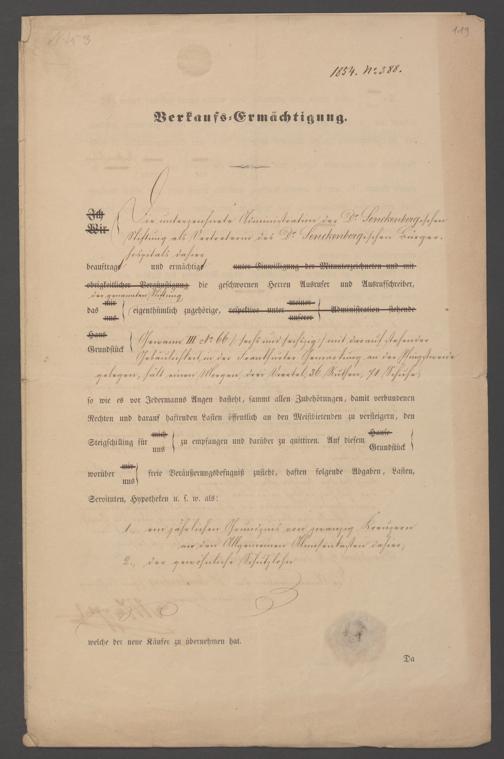 119
1854. No. 388.
Verkaufs-Ermächtigung.
Ich
Wir
Die unterzeichnete Administration der Dr. Senckenbergischen
Stiftung als Vertreterin des Dr. Senckenbergischen Bürger-
hospitals dahier
beauftragt und ermächtigt unter Einwilligung der Mitunterzeichneten und mit
obrigkeitlicher Vergünstigung die geschwornen Herren Ausrufer und Ausrufschreiber,
der genannten Stiftung
das mir uns eigenthümlich zugehörige, respektive unter meiner unserer Administration stehende
Haus
Grundstück Gewann III No 66 / sechs und sechzig / mit darauf stehender
Gebäulichkeit, in der Frankfurter Gemarkung an der Pfingstweide
gelegen, hält einen Morgen, drei Viertel, 36 Ruthen, 71 Schuhe
so wie es vor Jedermanns Augen dasteht, sammt allen Zubehörungen, damit verbundenen
Rechten und darauf haftenden Lasten öffentlich an den Meistbietenden zu versteigern, den
Steigschilling für mich uns zu empfangen und darüber zu quittiren. Auf diesem Hause Grundstück
worüber mir uns freie Veräußerungsbefugniß zusteht, haften folgende Abgaben, Lasten,
Servituten, Hypotheken u. s. w. als:
1., ein jährlicher Grundzins von zwanzig Kreuzern
an den Allgemeinen Almosenkasten dahier,
2., der gewöhnliche Schützlohn
welche der neue Käufer zu übernehmen hat.
Da